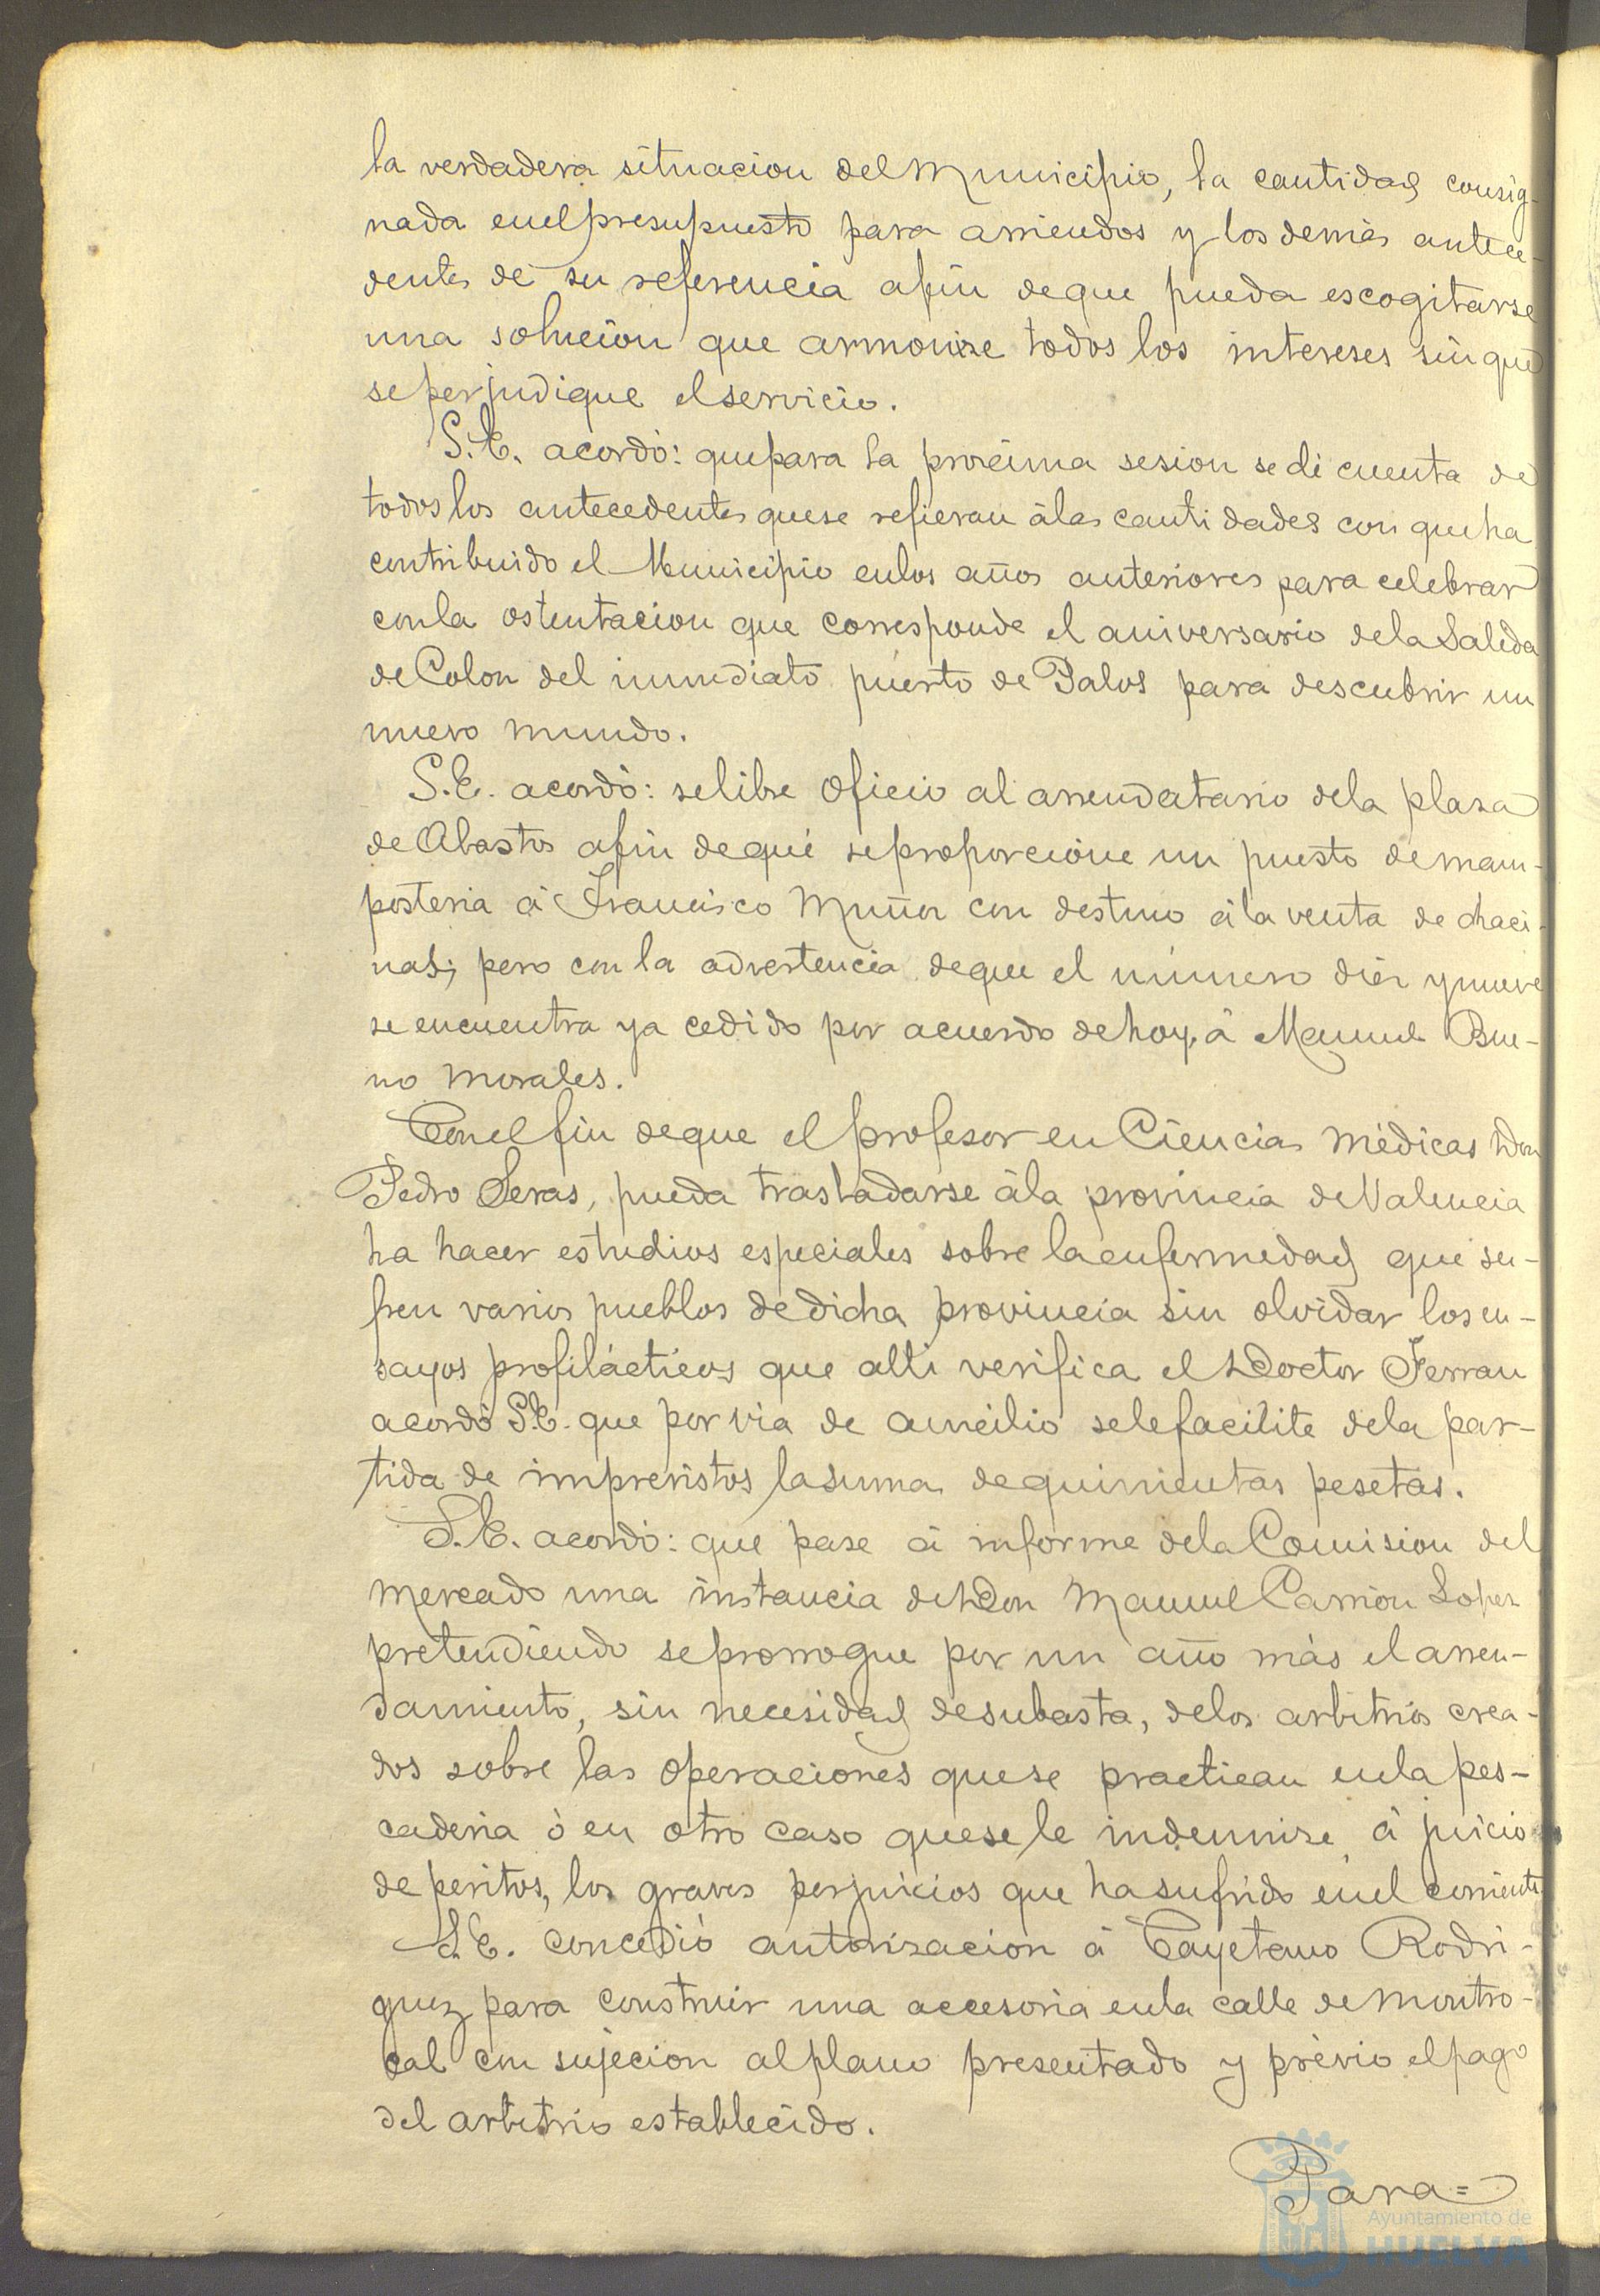 la verdadera situacion del Municipio, la cantidad consig-
nada en el presupuesto para arriendos y los demás antece-
dentes de su referencia afin de que pueda escogitarse
una solucion que armonize todos los intereses sin que
se perjudique el servicio.
S.E. acordó: que para la procsima sesion se dé cuenta de
todos los antecedentes que se refieran á las cantidades con que ha
contribuido el Municipio en los años anteriores para celebrar
con la ostentacion que corresponde el aniversario de la Salida
de Colon del inmediato puerto de Palos para descubrir un
nuevo mundo.
S.E. acordó: se libre oficio al arrendatario de la plaza
de Abastos afin de que se proporcione un puesto de mam-
posteria á Francisco Muñoz con destino á la venta de chaci-
nas; pero con la advertencia de que el número diez y nueve
se encuentra ya cedido por acuerdo de hoy, á Manuel Bue-
no Morales.
Con el fin de que el profesor en Ciencias Médicas Don
Pedro Seras, pueda trasladarse á la provincia de Valencia
ha hacer estudios especiales sobre la enfermedad que su-
fren varios pueblos de dicha provincia sin olvidar los en-
sayos profilácticos que alli verifica el Doctor Ferran
acordó S.E. que por via de aucilio se le facilite de la par-
tida de imprevistos la suma de quinientas pesetas.
S.E. acordó: que pase á informe de la Comision del
mercado una instancia de Don Manuel Carrion Lopez
pretendiendo se prorrogue por un año más el arren-
damiento, sin necesidad de subasta, de los arbitrios crea-
dos sobre las operaciones que se practican en la pes-
caderia ó en otro caso que se le indemnize, á juicio
de peritos, los graves perjuicios que ha sufrido en el corriente
S.E. concedió autorizacion á Cayetano Rodri-
guez para construir una accesoria en la calle de Montro-
cal con sujecion al plano presentado y prévio el pago
del arbitrio establecido.
Para=
Ayuntamiento de
HUELVA